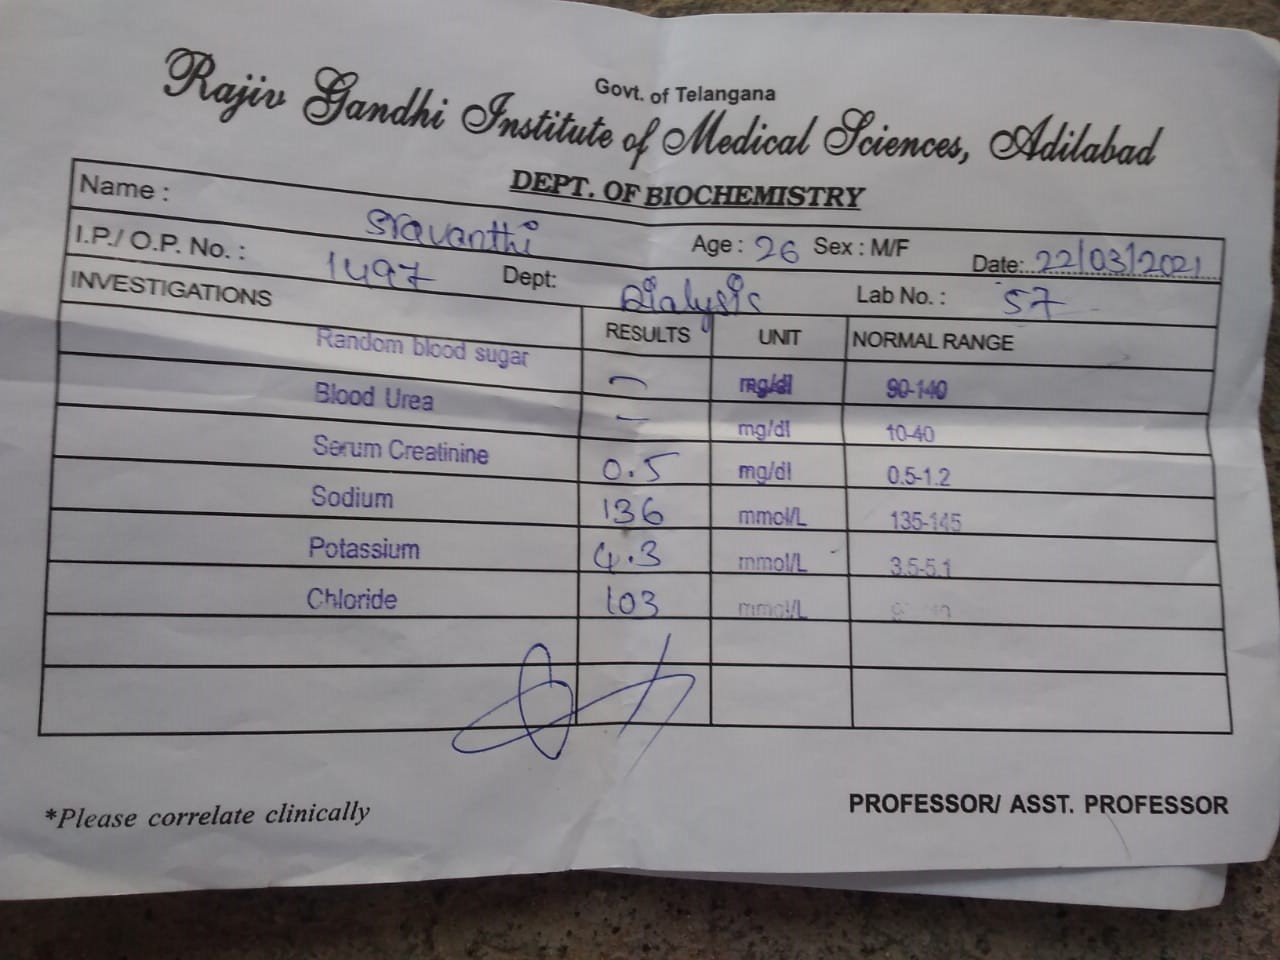 Govt. of Telangana
Rajiv Gandhi Institute of Medical Sciences, Adilabad
DEPT. OF BIOCHEMISTRY
Name : Sravanthi Age : 26 Sex : M/F Date: 22/03/2021
I.P./ O.P. No. : 1497 Dept: Dialysis Lab No. : 57
INVESTIGATIONS RESULTS UNIT NORMAL RANGE
Random blood sugar - mg/dl 90-140
Blood Urea - mg/dl 10-40
Serum Creatinine 0.5 mg/dl 0.5-1.2
Sodium 136 mmol/L 135-145
Potassium 4.3 mmol/L 3.5-5.1
Chloride 103 mmol/L
*Please correlate clinically PROFESSOR/ ASST. PROFESSOR